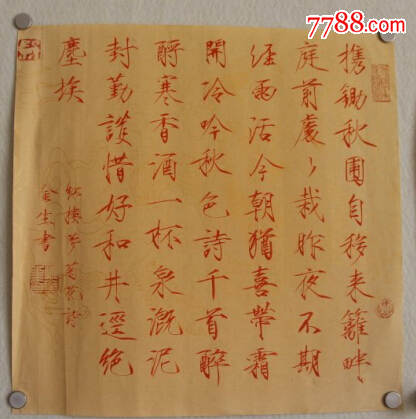 7788.com
携鋤秋圃自移来籬畔
庭前處々栽昨夜不期
經雨活今朝猶喜帶霜
開冷吟秋色詩千首醉
酹寒香酒一杯泉溉泥
封勤護惜好和井逕絶
塵埃
紅樓夢菊花詩
金生書